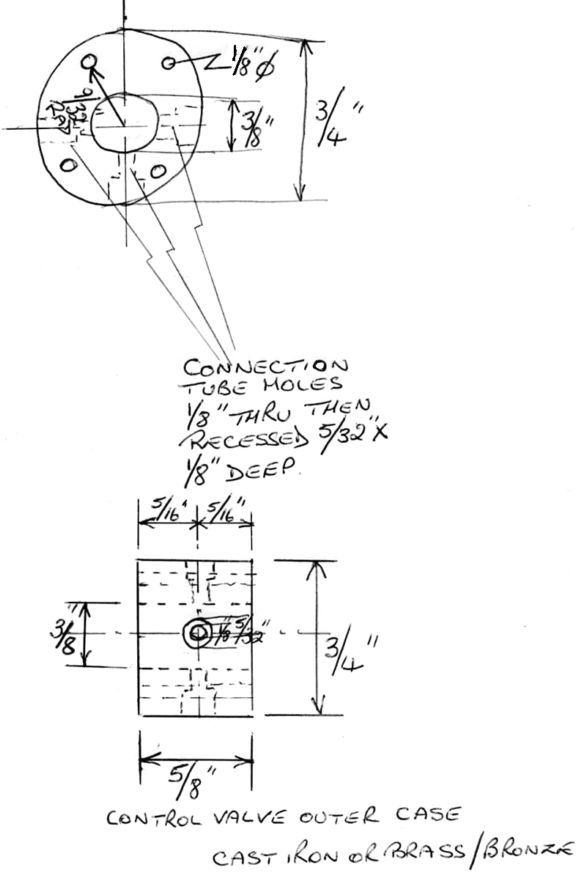 1/8" ø
3/8"
3/4"
CONNECTION
TUBE HOLES
1/8" THRU THEN
RECESSED 5/32" X
1/8" DEEP.
5/16" 5/16"
3/8"
1/8" 5/32"
3/4"
5/8"
CONTROL VALVE OUTER CASE
CAST IRON OR BRASS/BRONZE